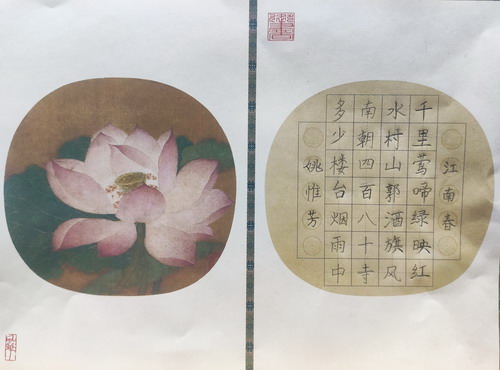 江南春
千里莺啼绿映红
水村山郭酒旗风
南朝四百八十寺
多少楼台烟雨中
姚惟芳